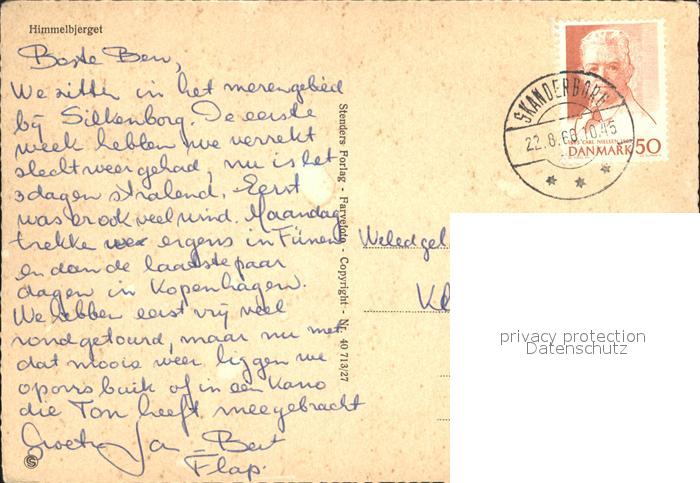 Himmelbjerget
Beste Ben,
We zitten in het merengebied
bij Silkenborg. De eerste
week hebben we verrekt
slecht weer gehad, nu is het
3 dagen stralend. Eerst
was er ook veel wind. Maandag
trekken we ergens in Fünen
en dan de laatste paar
dagen in Kopenhagen.
We hebben eerst vrij veel
rondgetourd, maar nu met
dat mooie weer liggen we
op ons buik of in een Kano
die Ton heeft meegebracht
Groeten Jan - Bert
Flap.
Stenders Forlag - Farvefoto - Copyright - Nr. 40 713/27
SKANDERBORG
22.8.66 10.45
CARL NIELSEN
DANMARK 50
Weledgel
privacy protection
Datenschutz